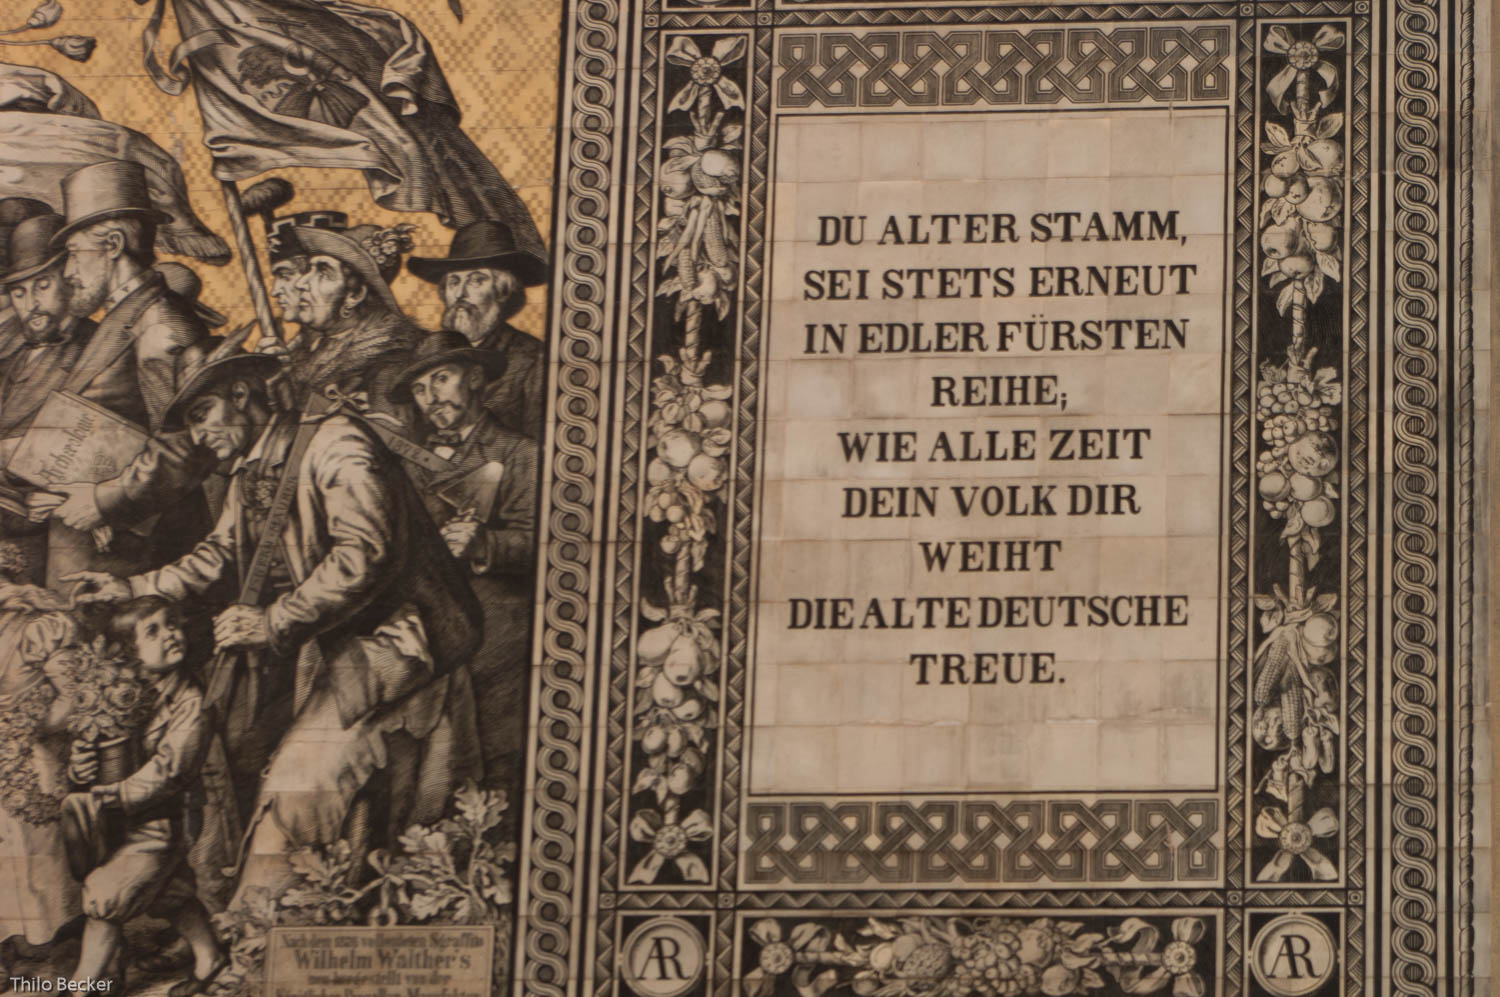 DU ALTER STAMM,
SEI STETS ERNEUT
IN EDLER FÜRSTEN
REIHE;
WIE ALLE ZEIT
DEIN VOLK DIR
WEIHT
DIE ALTE DEUTSCHE
TREUE.
AR
AR
Nach dem 1876 vollendeten Sgraffito
Wilhelm Walther's
von der
Thilo Becker